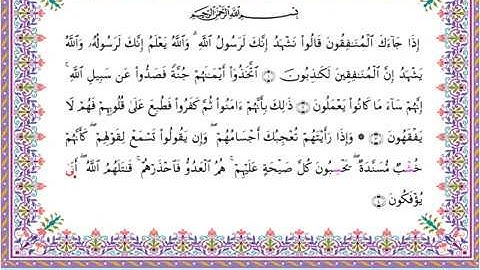 بِسْمِ اللَّهِ الرَّحْمَٰنِ الرَّحِيمِ
إِذَا جَآءَكَ ٱلْمُنَٰفِقُونَ قَالُوا۟ نَشْهَدُ إِنَّكَ لَرَسُولُ ٱللَّهِ ۗ وَٱللَّهُ يَعْلَمُ إِنَّكَ لَرَسُولُهُۥ وَٱللَّهُ
يَشْهَدُ إِنَّ ٱلْمُنَٰفِقِينَ لَكَٰذِبُونَ ۝١ ٱتَّخَذُوٓا۟ أَيْمَٰنَهُمْ جُنَّةً فَصَدُّوا۟ عَن سَبِيلِ ٱللَّهِ ۚ
إِنَّهُمْ سَآءَ مَا كَانُوا۟ يَعْمَلُونَ ۝٢ ذَٰلِكَ بِأَنَّهُمْ ءَامَنُوا۟ ثُمَّ كَفَرُوا۟ فَطُبِعَ عَلَىٰ قُلُوبِهِمْ فَهُمْ لَا
يَفْقَهُونَ ۝٣ ۞ وَإِذَا رَأَيْتَهُمْ تُعْجِبُكَ أَجْسَامُهُمْ ۖ وَإِن يَقُولُوا۟ تَسْمَعْ لِقَوْلِهِمْ ۖ كَأَنَّهُمْ
خُشُبٌ مُّسَنَّدَةٌ ۖ يَحْسَبُونَ كُلَّ صَيْحَةٍ عَلَيْهِمْ ۚ هُمُ ٱلْعَدُوُّ فَٱحْذَرْهُمْ ۚ قَٰتَلَهُمُ ٱللَّهُ ۖ أَنَّىٰ
يُؤْفَكُونَ ۝٤